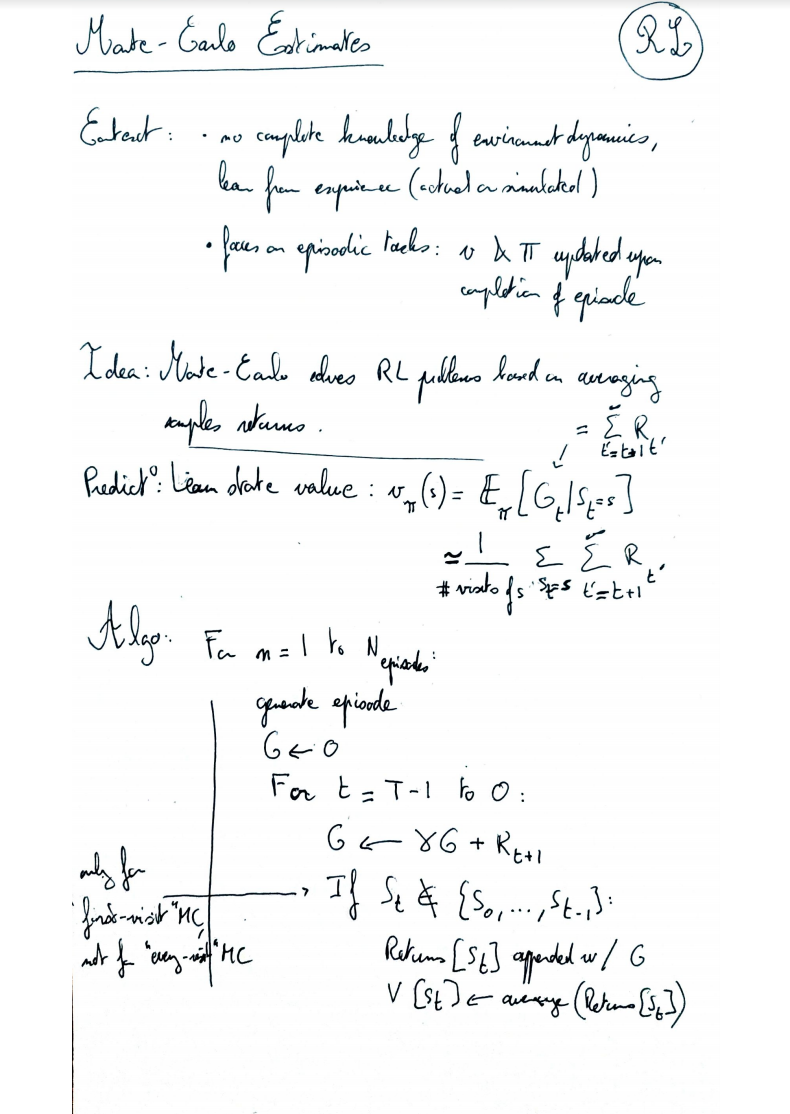 Monte-Carlo Estimates
RL
Context: · no complete knowledge of environment dynamics,
learn from experience (actual or simulated)
· focus on episodic tasks: v & π updated upon
completion of episode
Idea: Monte-Carlo solves RL problems based on averaging
samples returns.
= Σ R_t'
t'=t+1
Predict°: Learn state value: v_π(s) = E_π[G_t|S_t=s]
≃ 1 Σ Σ R_t'
# visits of s S_t=s t'=t+1
Algo: For n = 1 to N_episodes:
generate episode
G ← 0
For t = T-1 to 0:
G ← γG + R_t+1
only for
"first-visit" MC,
not for "every-visit" MC
If S_t ∉ {S_0,...,S_t-1}:
Returns[S_t] appended w/ G
V[S_t] ← average(Returns[S_t])